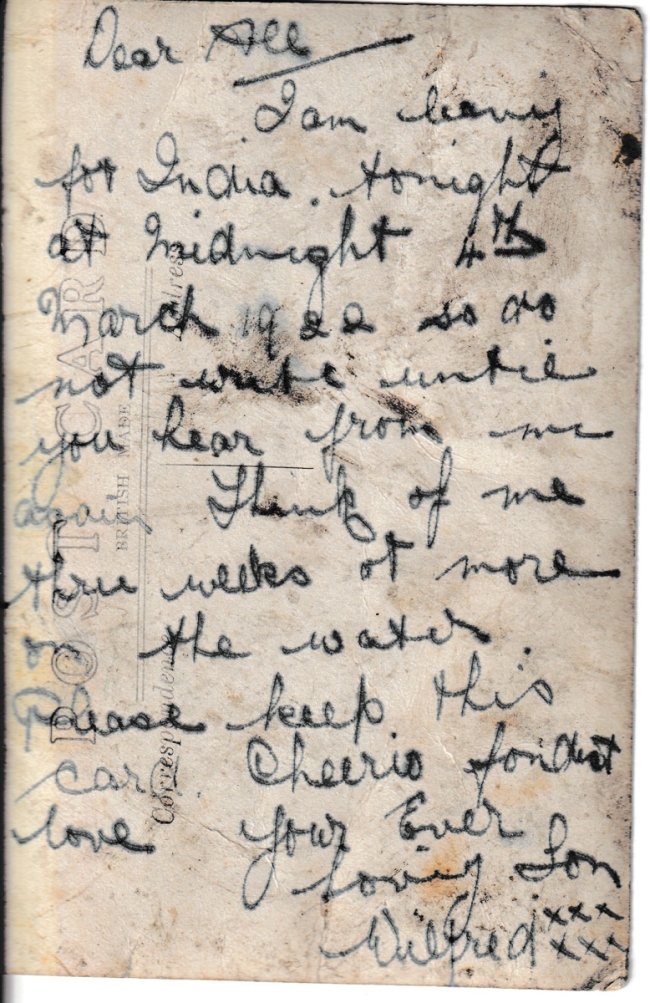 Dear All
I am leaving
for India. tonight
at Midnight 4th
March 1922 so do
not write until
you hear from me
again Think of me
three weeks or more
on the water.
Please keep this
car. Cheerio fondest
love your Ever
loving Son
Wilfred xxx
xxx
POST CARD
BRITISH MADE
Correspondence
Address